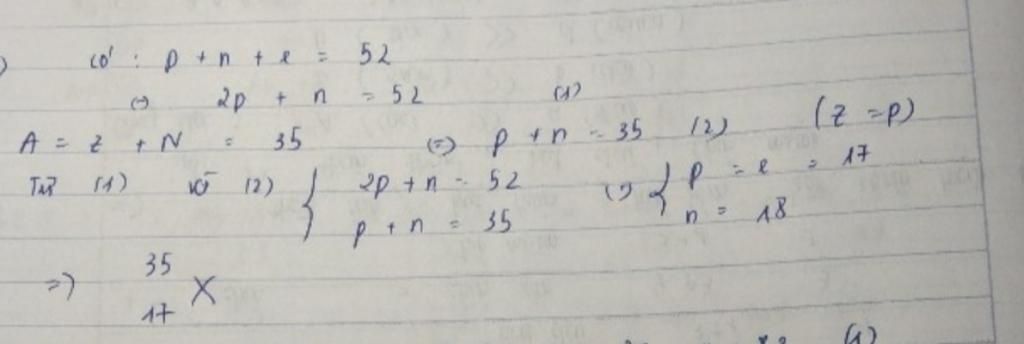 có : p + n + e = 52
<=> 2p + n = 52 (1)
A = Z + N = 35 <=> p + n = 35 (2) (Z = p)
Từ (1) và (2) { 2p + n = 52 <=> { p = e = 17
p + n = 35 n = 18
=> 35
17 X
(1)